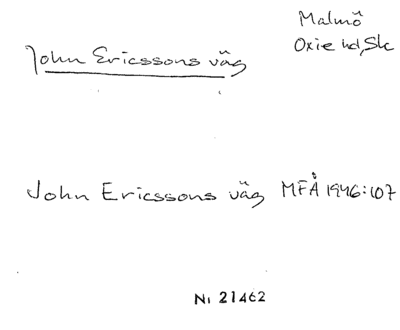 Malmö
John Ericssons väg Oxie hd, Sk
John Ericssons väg MFÅ 1946:107
Ni 21462